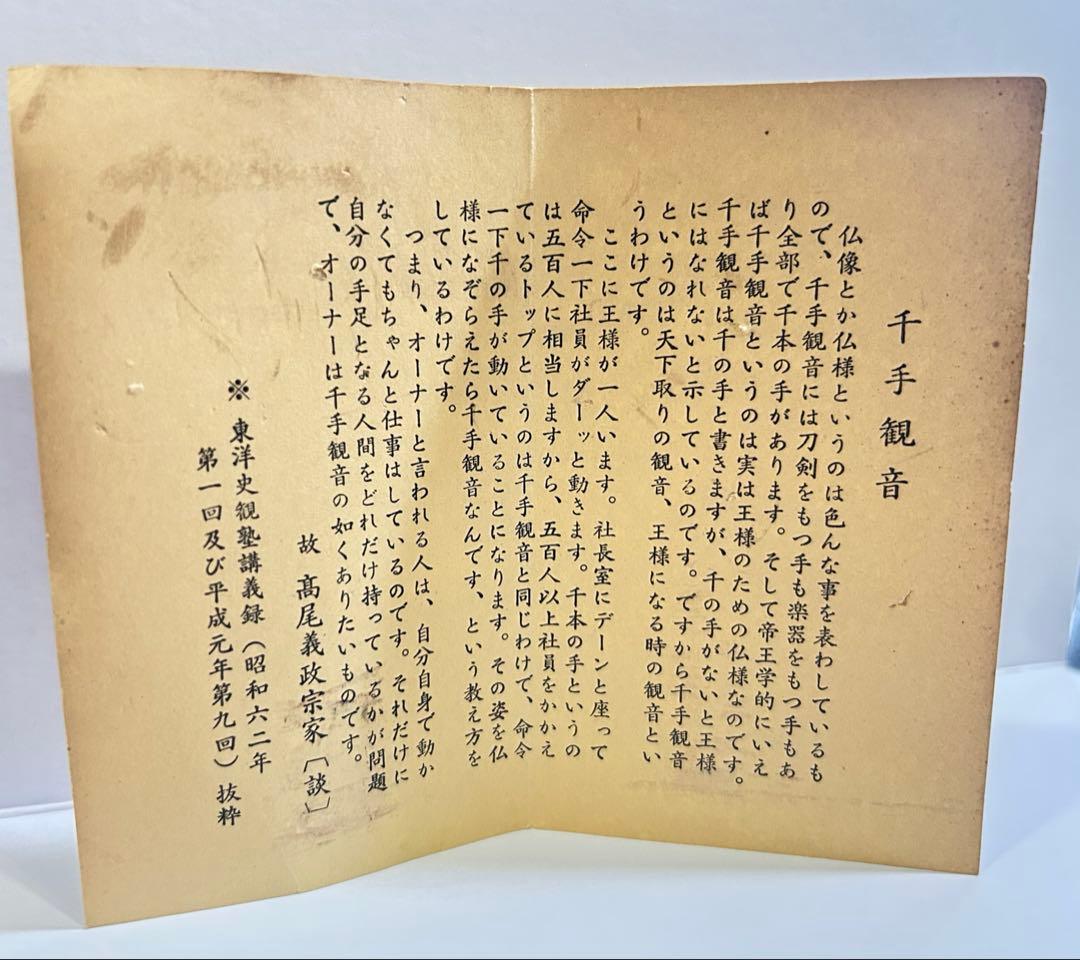 千手観音
仏像とか仏様というのは色んな事を表わしているも
ので、千手観音には刀剣をもつ手も楽器をもつ手もあ
り全部で千本の手があります。そして帝王学的にいえ
ば千手観音というのは実は王様のための仏様なのです。
千手観音は千の手と書きますが、千の手がないと王様
にはなれないと示しているのです。ですから千手観音
というのは天下取りの観音、王様になる時の観音とい
うわけです。
ここに王様が一人います。社長室にデーンと座って
命令一下社員がダーッと動きます。千本の手というの
は五百人に相当しますから、五百人以上社員をかかえ
ているトップというのは千手観音と同じわけで、命令
一下千の手が動いていることになります。その姿を仏
様になぞらえたら千手観音なんです、という教え方を
しているわけです。
つまり、オーナーと言われる人は、自分自身で動か
なくてもちゃんと仕事はしているのです。それだけに
自分の手足となる人間をどれだけ持っているかが問題
で、オーナーは千手観音の如くありたいものです。
故 髙尾義政宗家〔談〕
※ 東洋史観塾講義録(昭和六二年
第一回及び平成元年第九回)抜粋